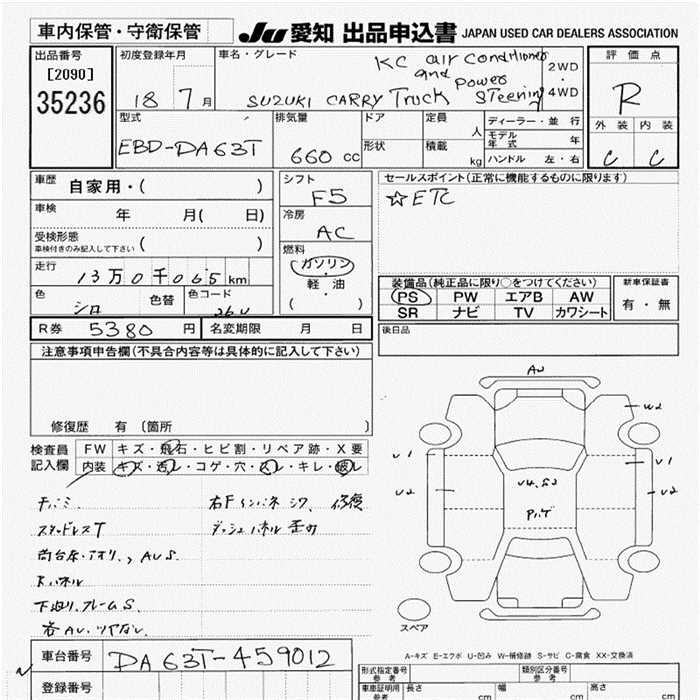 車内保管・守衛保管
JU 愛知 出品申込書 JAPAN USED CAR DEALERS ASSOCIATION
出品番号
[2090]
35236
初度登録年月
18 7 月
車名・グレード
KC air conditioner
and power
SUZUKI CARRY Truck Steering
2WD
・
4WD
評価点
R
外装 内装
C C
型式
EBD-DA63T
排気量
660 cc
ドア
形状
定員
人
積載
kg
ディーラー・並行
モデル年式 年
ハンドル 左・右
車歴 自家用・( )
車検 年 月( 日)
受検形態
車検付きのみ記入して下さい ( )
走行 13万0千065 km
色 シロ
色替
色コード 26U
R券 5380 円
名変期限 月 日
シフト
F5
冷房
AC
燃料
ガソリン・
軽・油
( )
セールスポイント(正常に機能するものに限ります)
☆ETC
装備品(純正品に限り○をつけてください)
PS PW エアB AW
SR ナビ TV カワシート
新車保証書
有・無
後日品
注意事項申告欄(不具合内容等は具体的に記入して下さい)
修復歴 有 〔箇所 〕
検査員
記入欄
FW キズ・飛石・ヒビ割・リペア跡・X要
内装 キズ・汚レ・コゲ・穴・凹レ・キレ・破レ
スタッドレスT
荷台床・アオリ、AUS.
Rパネル
下廻り、フレームS.
右Fインパネ シワ、修復
ダッシュパネル 歪み
AU
W2
U1
U1
U2
U2
U4.S2
スペア
A-キズ E-エクボ U-凹み W-補修跡 S-サビ C-腐食 XX-交換済
車台番号 DA63T-459012
登録番号
型式指定番号
参考
類別区分番号
参考
車庫証明用
参考
長さ cm
幅 cm
高さ cm